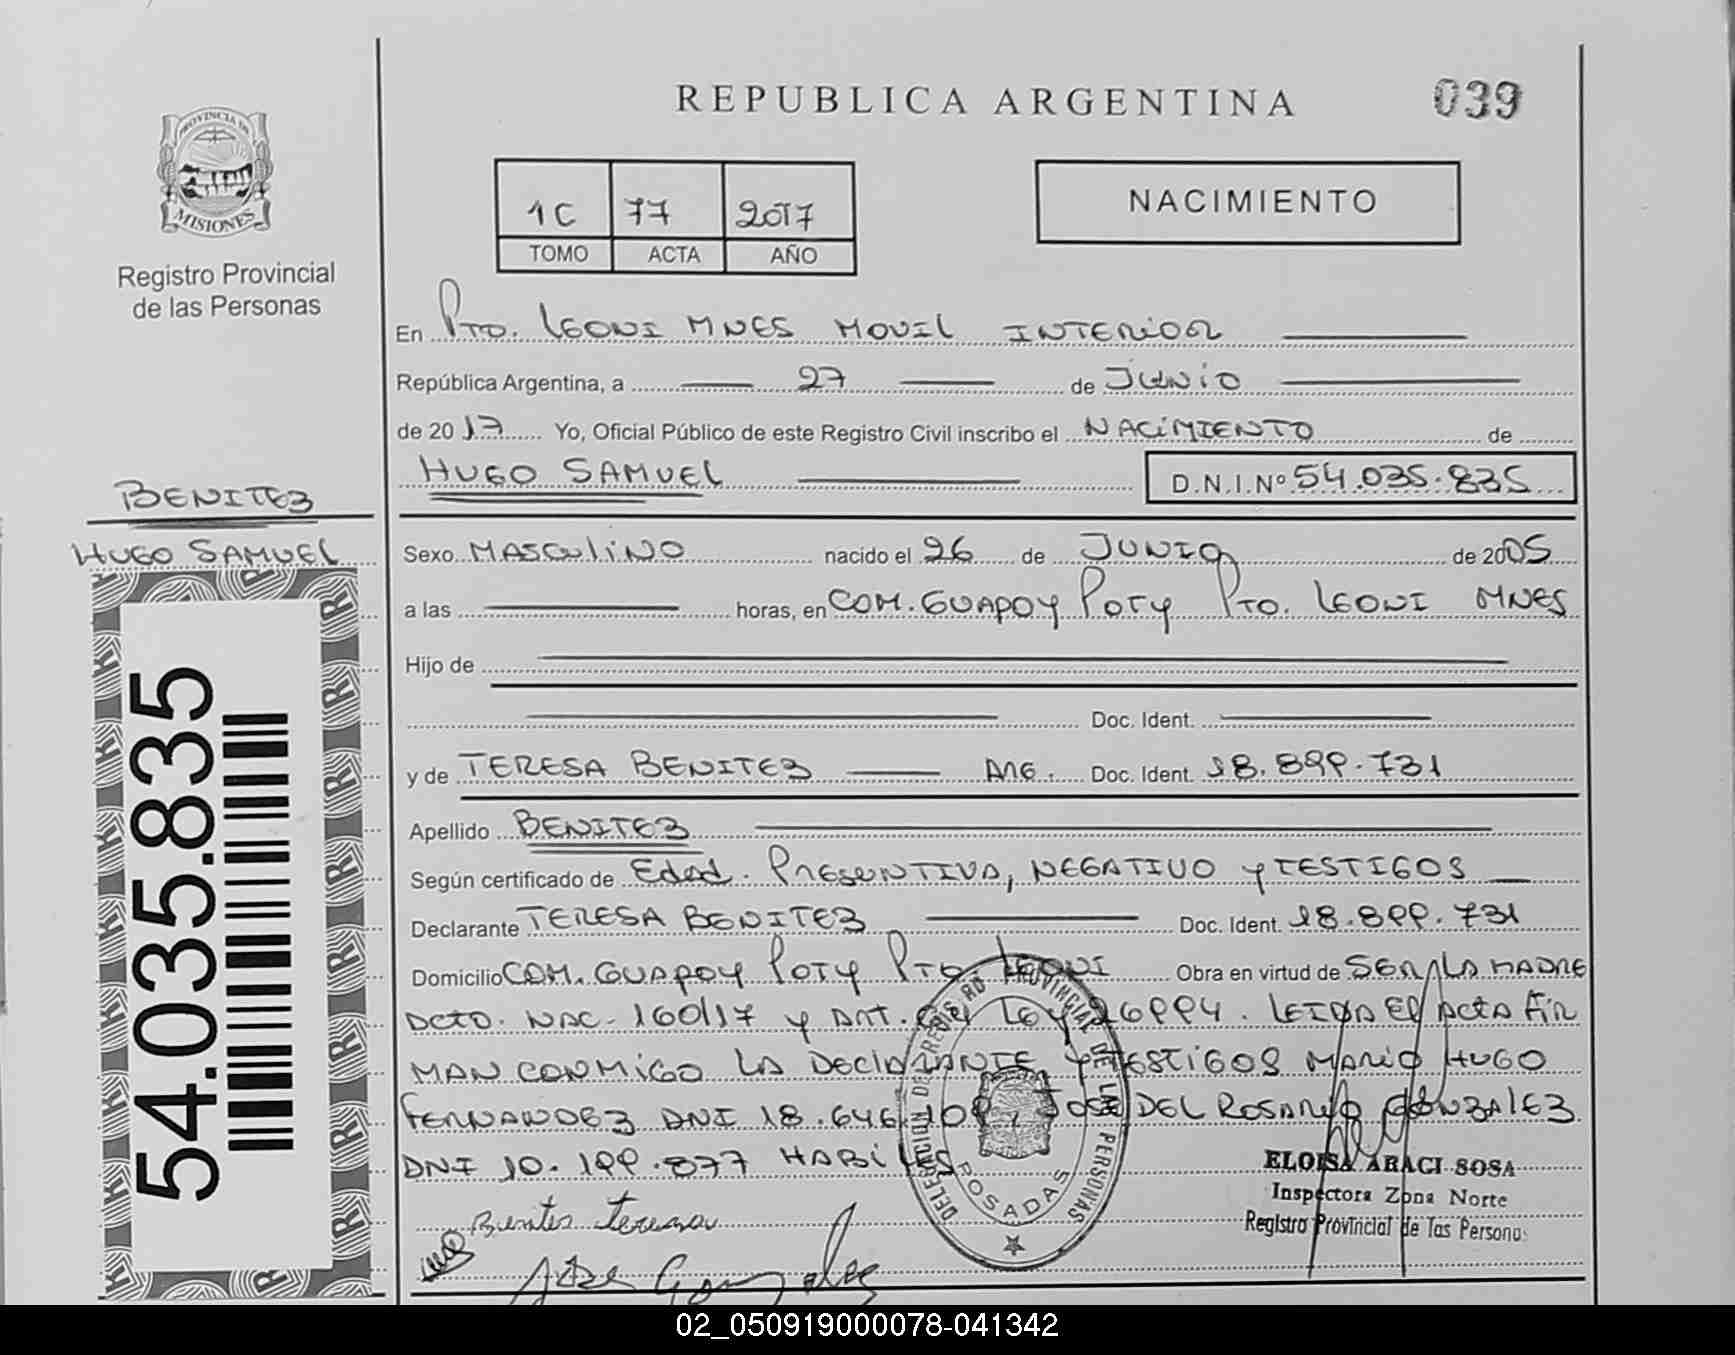 REPUBLICA ARGENTINA
039
PROVINCIA DE MISIONES
Registro Provincial
de las Personas
1C 77 2017
TOMO ACTA AÑO
NACIMIENTO
En PTO. LEONI MNES MOVIL INTERIOR
República Argentina, a 27 de JUNIO
de 2017 Yo, Oficial Público de este Registro Civil inscribo el NACIMIENTO de
HUGO SAMUEL D.N.I.Nº 54.035.835
BENITEZ
HUGO SAMUEL
54.035.835
Sexo MASCULINO nacido el 26 de JUNIO de 2005
a las horas, en COM. GUAPOY POTY PTO. LEONI MNES
Hijo de
Doc. Ident.
y de TERESA BENITEZ ARG. Doc. Ident. 18.899.731
Apellido BENITEZ
Según certificado de Edad. PRESUNTIVA, NEGATIVO y TESTIGOS
Declarante TERESA BENITEZ Doc. Ident. 18.899.731
Domicilio COM. GUAPOY POTY PTO. LEONI Obra en virtud de SER LA MADRE
DCTO. NAC. 160/17 y ART. LEY 26994. LEIDA EL ACTA FIR
MAN CONMIGO LA DECLARANTE y TESTIGOS MARIO HUGO
FERNANDEZ DNI 18.646.109, JOSE DEL ROSARIO GONZALEZ
DNI 10.199.877 HABILES
DELEGACION DE REGISTRO PROVINCIAL DE LAS PERSONAS
POSADAS
ELOISA ARACI SOSA
Inspectora Zona Norte
Registro Provincial de las Personas
Benites teresa
Jose Gonzalez
02_050919000078-041342